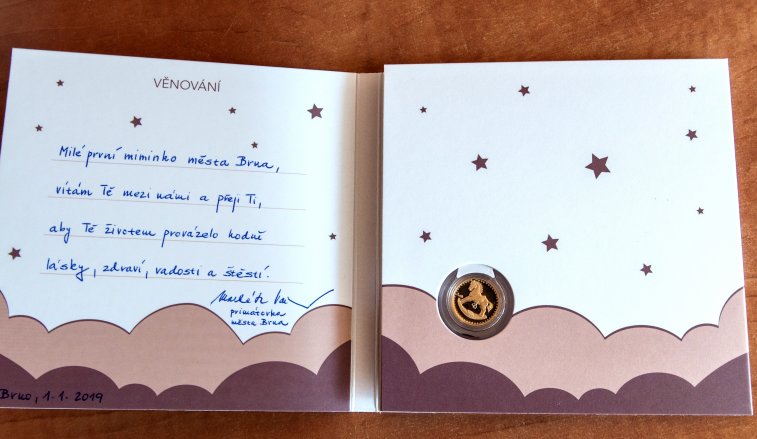 VĚNOVÁNÍ
Milé první miminko města Brna,
vítám Tě mezi námi a přeji Ti,
aby Tě životem provázelo hodně
lásky, zdraví, radosti a štěstí.
primátorka
města Brna
Brno, 1.1. 2019